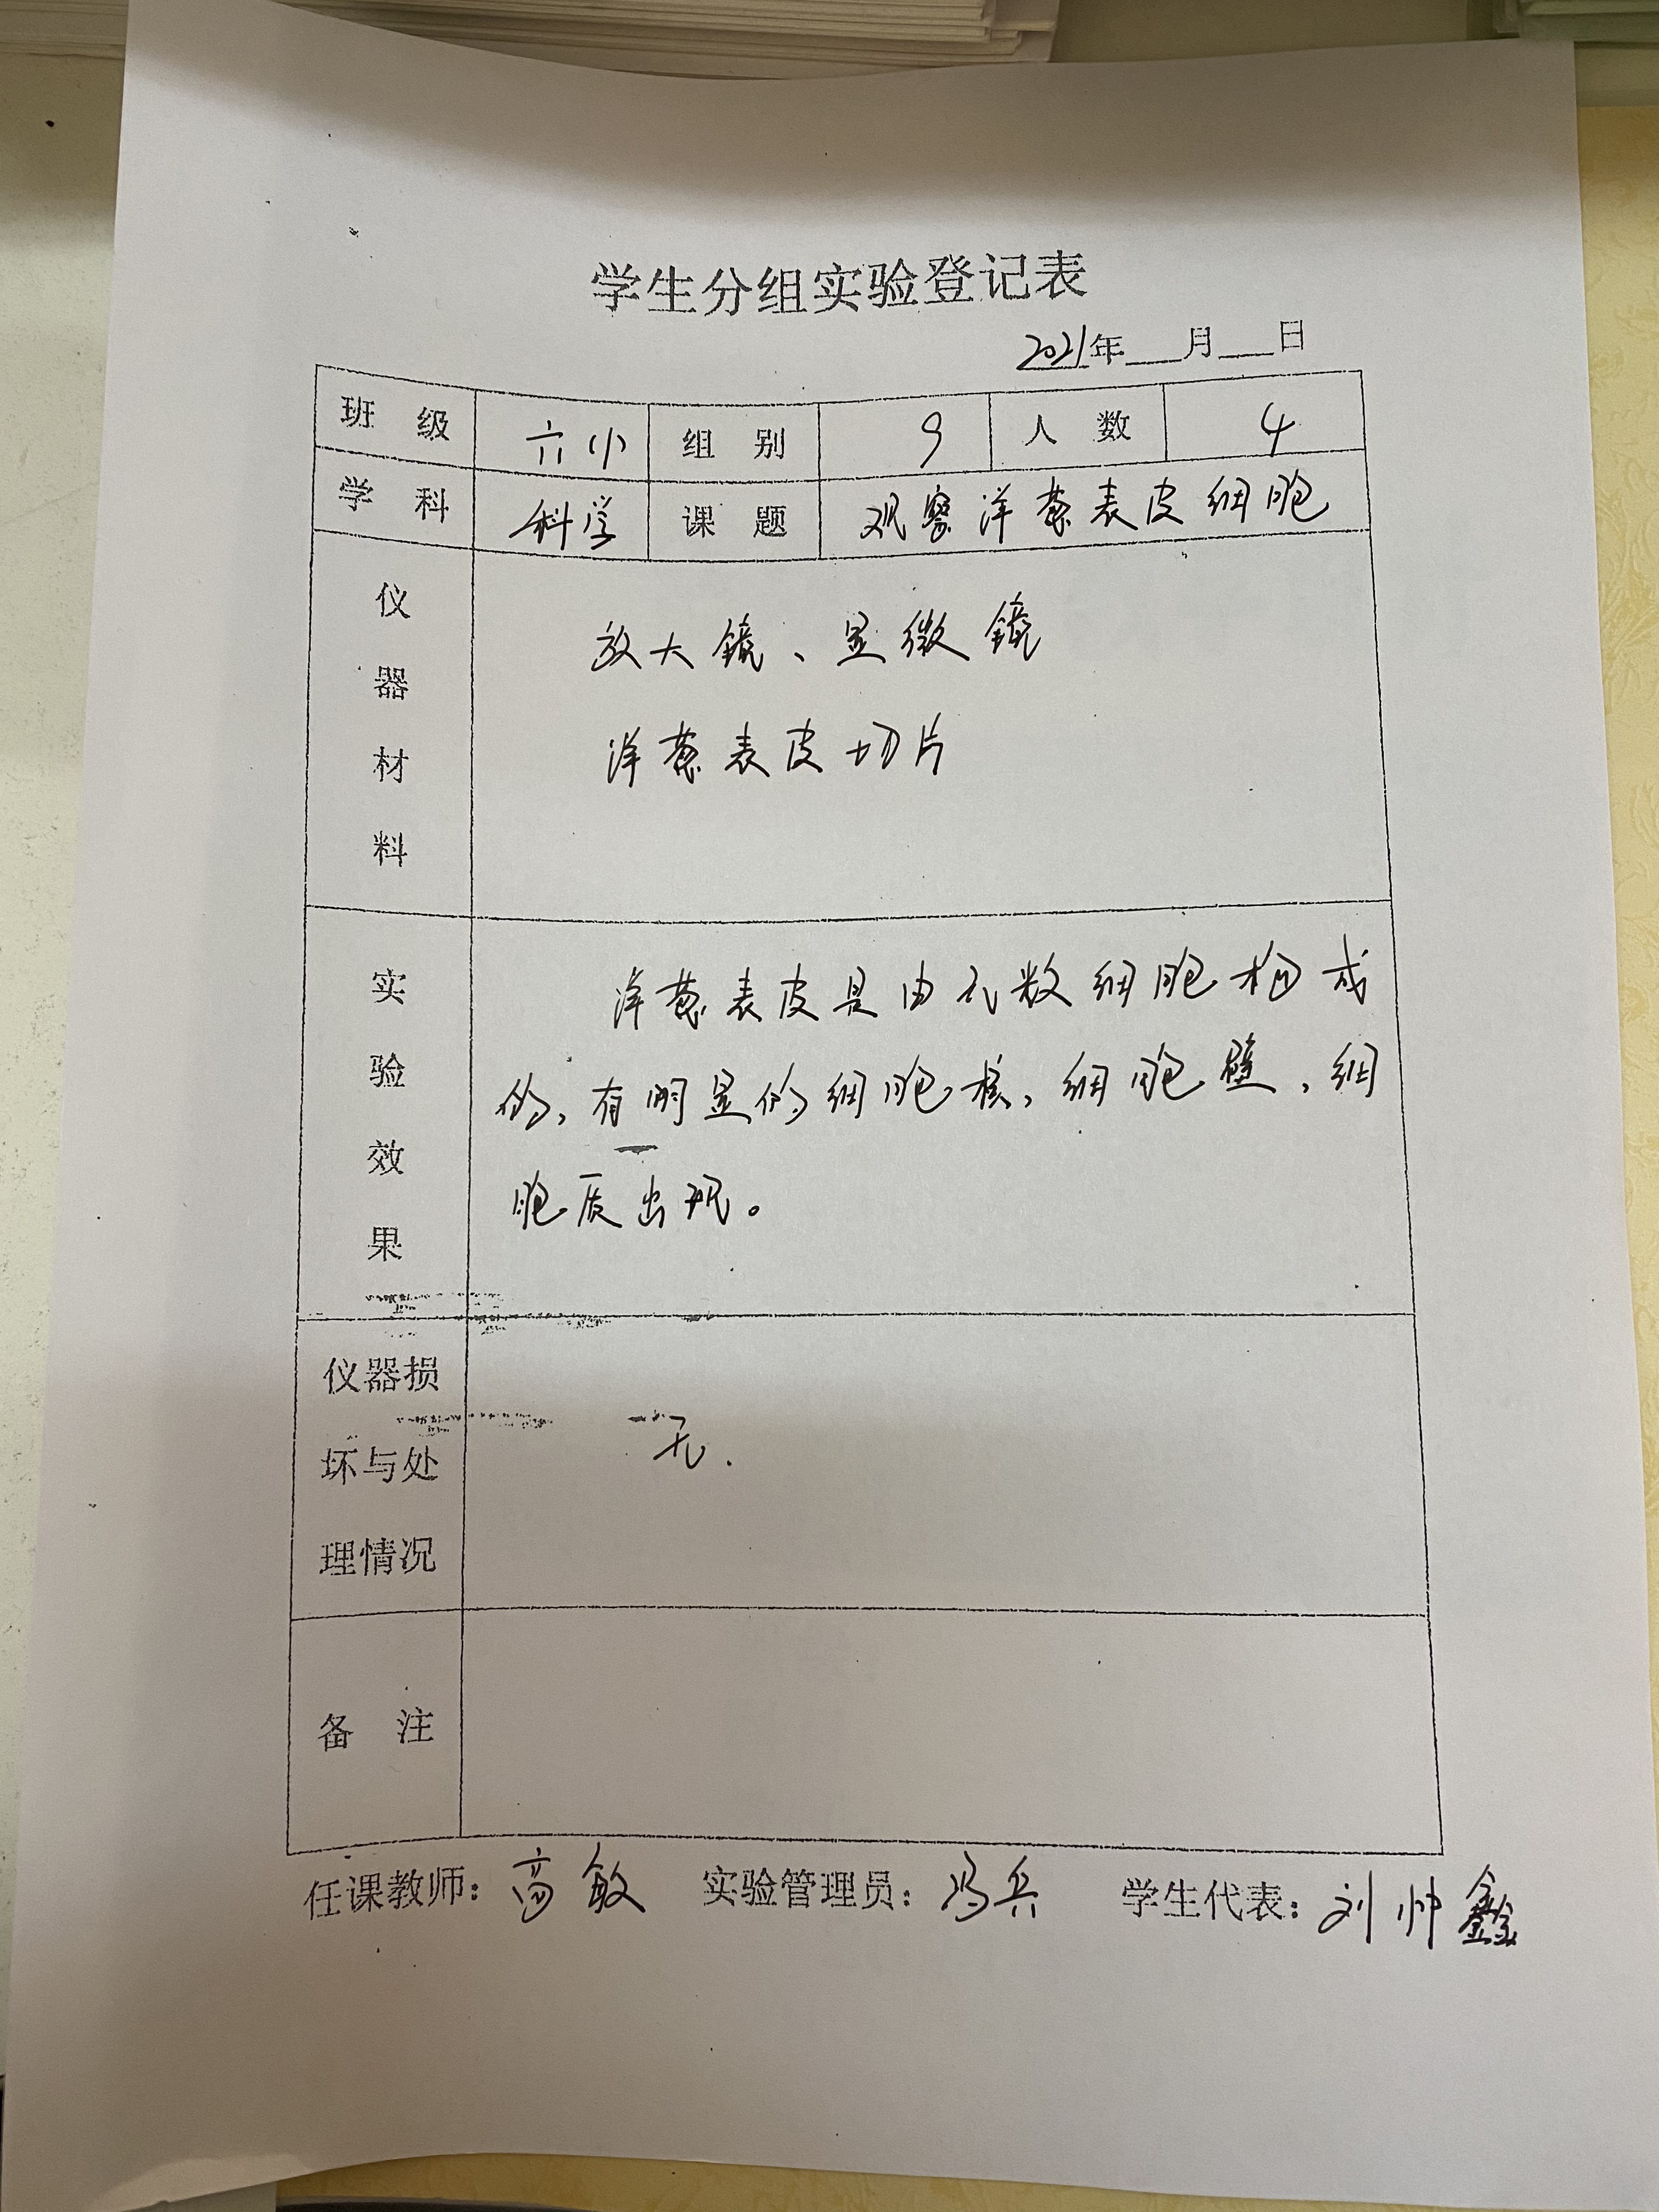 学生分组实验登记表
2021年___月___日
班 级 六小 组 别 9 人 数 4
学 科 科学 课 题 观察洋葱表皮细胞
仪器材料
放大镜、显微镜
洋葱表皮切片
实验效果
洋葱表皮是由无数细胞构成
的,有明显的细胞核,细胞壁,细
胞质出现。
仪器损
坏与处
理情况
无.
备 注
任课教师:高敏 实验管理员:冯兵 学生代表:刘帅鑫